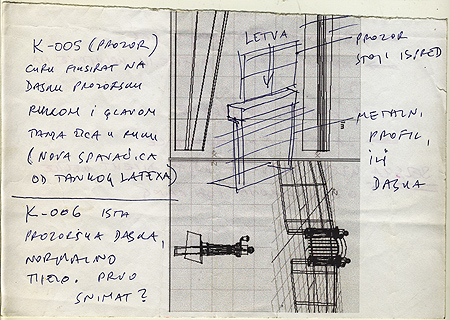 K-005 (PROZOR)
CURU FIKSIRAT NA
DASKU PROZORSKU
RUKOM I GLAVOM
TAMA ŽICA U RUKU
(NOVA SPAVAĆICA
OD TANKOG LATEXA)
K-006 ISTA
PROZORSKA DASKA,
NORMALNO
TIJELO. PRVO
SNIMAT?
LETVA
PROZOR
STOJI ISPRED
METALNI
PROFIL,
ILI
DASKA